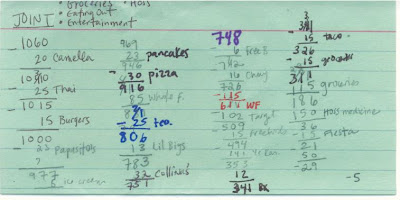 Groceries • Hoss
JOINT • Eating Out
• Entertainment
1060
- 20 Camella
1040
- 25 Thai
1015
- 15 Burgers
1000
- 23 Papasitos
977
6 ice cream
969
- 23 pancakes
946
- 30 pizza
916
- 85 Whole F.
831
- 25 tea
806
- 13 Lil Bigs
783
- 32 Cullinus
751
748
- 6 Free B
742
- 16 Chang
726
- 115
611 WF
- 102 Target
509
- 15
494
- 141
353
- 12
341 BX
341
- 15 taco
326
- 15 groceries
311
- 115 groceries
186
- 150 Hoss medicine
36
- 15 Fiesta
21
- 50
- 29
-5